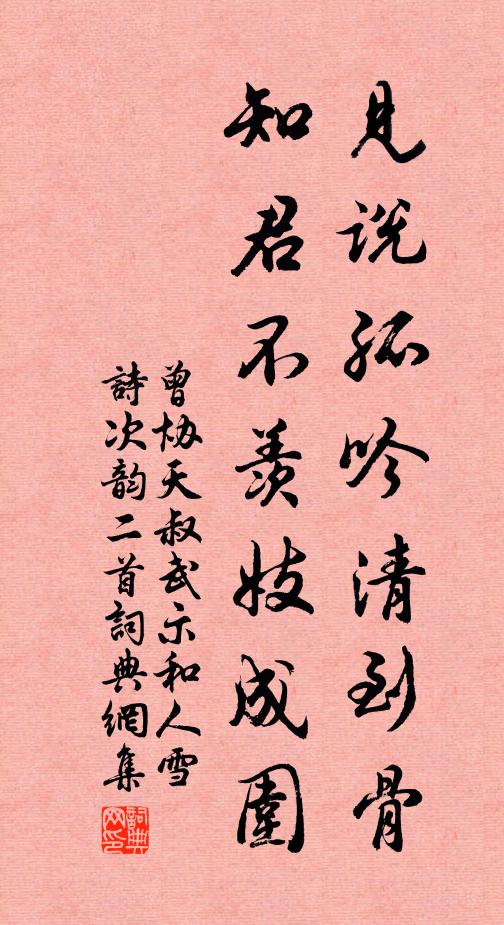 見說孤吟清到骨
知君不羨妓成圍
曾協天叔武示和人雪
詩次韵二首詞典網集
詞典网印